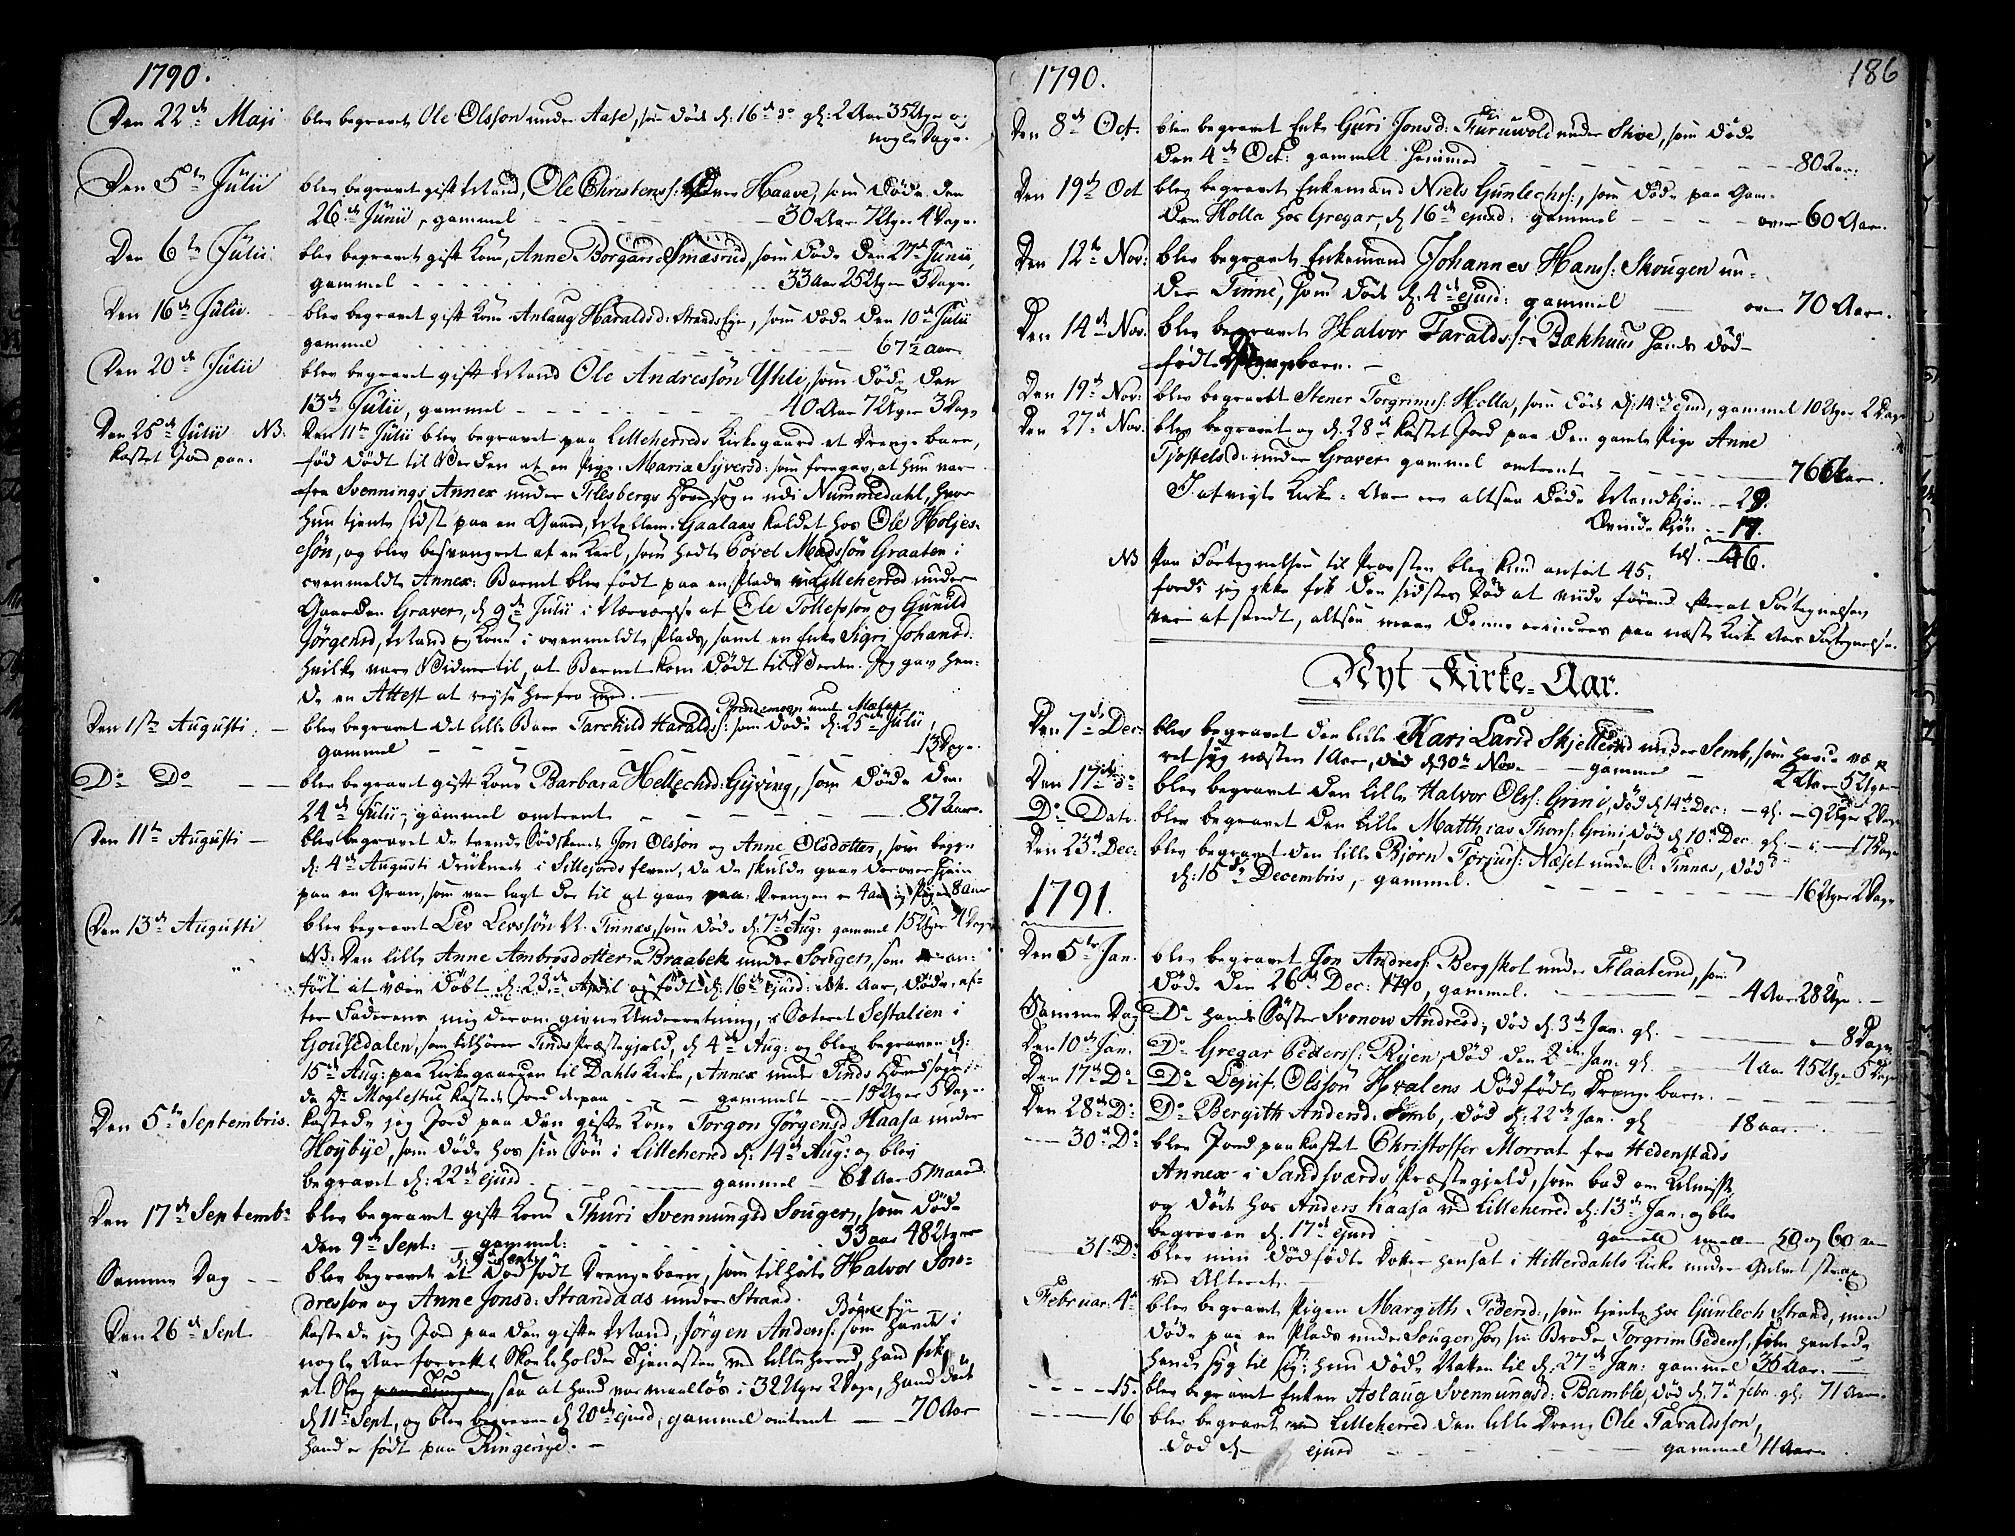 1790.
Den 22de Maji blev begravet Ole Olsson under Aase, som døde d: 16de do gl: 2 Aar 35 Uger og
nogle Dage.
Den 5te Julii blev begravet gift Mand, Ole Christenss: Haave, som døde den
26de Junii, gammel 30 Aar 7 Uger 4 Dage.
Den 6te Julii blev begravet gift Kone, Anne Borgarsd: Smæsrud, som døde den 27de Junii,
gammel 33 Aar 25 Uger 3 Dage.
Den 16de Julii. blev begravet gift Kone Anlaug Haraldsd: Strands Eje, som døde den 10de Julii
gammel 67½ Aar
Den 20de Julii blev begravet gift Mand Ole Andressøn Yhli, som døde den
13de Julii, gammel 40 Aar 7 Uger 3 Dage
Den 25de Julii NB. Den 11te Julii blev begravet paa Lilleherreds Kirkegaard et Drenge barn,
kastet Jord paa. fød dødt til Verden af en Pige: Maria Syversd: som foregav, at hun var
fra Svennings Annex under Flesbergs Hovedsogn udi Nummedahl, hvor
hun tjente sidst paa en Gaard, Gaalaas kaldet hos Ole Holjes-
søn, og blev besvangret af en Karl, som hedte Povel Madssøn Graaten i
ovenmeldte Annex: Barnet blev født paa en Plads i Lilleherred under
Gaarden Graver, d: 9de Julii i Nærværelse af Ole Tollefssøn og Gunild
Jørgensd, Mand og Kone i ovenmeldte Plads, samt en Enke Sigri Johansd:
hvilke vare Vidner til, at Barnet kom dødt til Verden. Jeg gav hen-
de en Attest at reyse herfra med.
Den 1ste Augusti blev begravet det lille Barn Tarchild Haralds: som døde d: 25de Julii,
gammel 13 Dage.
Do Do blev begravet gift Kone Barbara Hellechsd: Gyving, som døde den
24de Julii, gammel omtrent 87 Aar.
Den 11te Augusti blev begravet de tvende Sødskende Jon Olsson og Anne Olsdotter, som begge
d: 4de Augusti druknede i Sillejords Elven, da de skulde gaae derover
paa en Gran, som var lagt der til at gaae paa: Drengen er 4 Aar og Pigen 8 Aar
Den 13de Augusti blev begravet Lev Levssøn N. Tinnes, som døde d: 7de Aug: gammel 15 Uger 4 Dage
NB: Den lille Anne Ambrosdotter Braabek under Sougen, som an-
ført at være døbt d: 23de April og født d: 16de ejusd: Aar, døde, ef-
ter Faderens mig derom givne Underretning, i Sæteret Sestalien i
Gousedalen, som tilhører Tinds Præstegjæld, d: 4de Aug: og blev begraven d:
15de Aug: paa Kirkegaarden til Dahls Kirke, Annex under Tinds Hovedsogn:
da Hr Moglestue kastede Jord derpaa gammelt 15 Uger 5 Dage
Den 5te Septembris. kastede jeg Jord paa den gifte Kone Torgon Jørgensd Haasa under
Hoybye, som døde hos sin Søn i Lilleherred d: 14de Aug: og blev
begravet d: 22de ejusd gammel 61 Aar 5 Maaned.
Den 17de Septembr blev begravet gift Kone Thuri Svennungsd Sougen, som døde
den 9de Sept: gammel: 33 Aar 48 Uger
Samme Dag blev begravet et dødfødt Drengebarn, som tilhørte Halvor Son-
dresson og Anne Jonsd: Strandaas under Strand.
Den 26de Sept kastede jeg Jord paa den gifte Mand, Jørgen Anders: som havde i
nogle Aar forrettet Skoleholder Tjenesten ved Lilleherred, hand fik
et Slag saa at hand var maalløs i 32 Uger 2 Dage, hand døde
d 11te Sept, og blev begraven d: 20de ejusd, gammel omtrent 70 Aar
hand er født paa Ringerige.
186
1790.
Den 8de Oct. blev begravet Enke Guri Jonsd: Furuvold under Skoe, som døde
den 4de Oct: gammel 80 Aar.
Den 19de Oct blev begravet Enkemand Niels Gunlechs:, som døde paa Gam-
den Holla hos Gregar, d: 16de ejusd: gammel over 60 Aar.
Den 12te Nov: blev begravet Enkemand Johannes Hanss: Skougen un-
der Tinne, som døde d: 4de ejusd: gammel over 70 Aar.
Den 14de Nov. blev begravet Halvor Taraldss: Bækhuus hands død-
fødte Drengebarn.
Den 19de Nov: blev begravet Stener Torgrims: Holla, som døde d: 14de ejusd, gammel 10 Uger 2 Dage
Den 27de Nov. blev begravet og d: 28de kastet Jord paa den gamle Pige Anne
Tjostelsd: under Graver gammel omtrent 76 Aar.
I afvigte Kirke-Aar ere altsaa døde Mandkjøn 29.
Qvindekjøn 17.
tils. 46.
NB Paa Fortegnelsen til Provsten blev kund anført 45.
fordi jeg ikke fik den sidstes Død at viide førend efter at Fortegnelsen
var afsendt, altsaa maae denne erindres paa næste Kirke Aars Fortegnelse.
Nyt Kirke-Aar.
Den 7de Dec: blev begravet den lille Kari Larsd Skjellerud under Semb, som havde væ-
ret syg næsten 1 Aar, død d: 30te Nov. gammel 2 Aar 5 Uger
Den 17de do blev begravet den lille Halvor Olss: Grini, død d: 14de Dec: gl: 9 Uger 2 Dage
Do Dato. blev begravet den lille Matthias Thors: Grini, død d: 10de Dec. gl. 17 Dage
Den 23de Dec: blev begravet den lille Bjørn Torjuss: Næset under S: Tinnes, død
d: 15de Decembris, gammel. 16 Uger 2 Dage
1791.
Den 5te Jan. blev begravet Jon Andress: Bergskot under Flaaterud, som
døde den 26de Dec: 1790, gammel. 4 Aar 28 Uger.
Samme Dag Do hands Søster Svonow Andresd, død d: 3de Jan: gl. 8 Dage
Den 10de Jan. Do Gregar Peders: Rijen, død den 2den Jan. gl. 4 Aar 45 Uger 5 Dage
Den 17de Do Do Lejuf. Olssøn Hvalens dødfødte Drengebarn.
Den 28de D: Do Bergith Andersd. Semb, død d: 22de Jan. gl 18 Aar.
30te D: blev Jord paakastet Christoffer Morrat fra Hedenstads
Annex i Sandsværds Præstegjeld, som bad om Almisse,
og døde hos Anders Kaasa ved Lilleherred d: 13de Jan: og blev
begraven d. 17de ejusd gamel mell: 50 og 60 Aar
31te D: blev min dødfødte Dotter hensat i Hitterdahls Kirke under Gulvet strax
ved Alteret.
Februar: 4de blev begravet Pigen Margith Pedersd:, som tjente hos Gunlech Strand, men
døde paa en Plads under Souger hos sin Broder Torgrim Peders:, som hentede
hende syg til sig: hun døde Natten til d: 27de Jan: gammel 36 Aar.
15. blev begravet Enken Aslaug Svennungsd: Bamble, død d: 7de Febr. gl: 71 Aar.
16 blev begravet ved Lilleherred den lille Dreng Ole Taraldsson,
død d ejusd gammel 11 Aar.